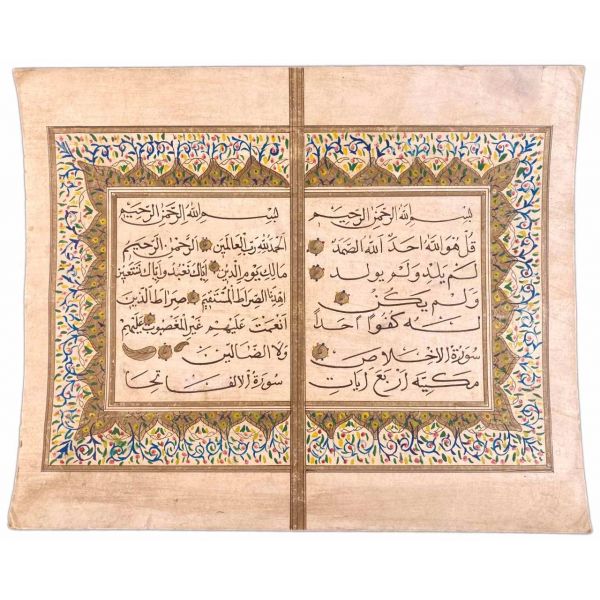 بسم الله الرحمن الرحيم
قل هو الله احد الله الصمد
لم يلد ولم يولد
ولم يكن
له كفوا احدا
سورة الاخلاص
مكية اربع ايات
بسم الله الرحمن الرحيم
الحمد لله رب العالمين الرحمن الرحيم
مالك يوم الدين اياك نعبد واياك نستعين
اهدنا الصراط المستقيم صراط الذين
انعمت عليهم غير المغضوب عليهم
ولا الضالين
سورة الالفاتحا